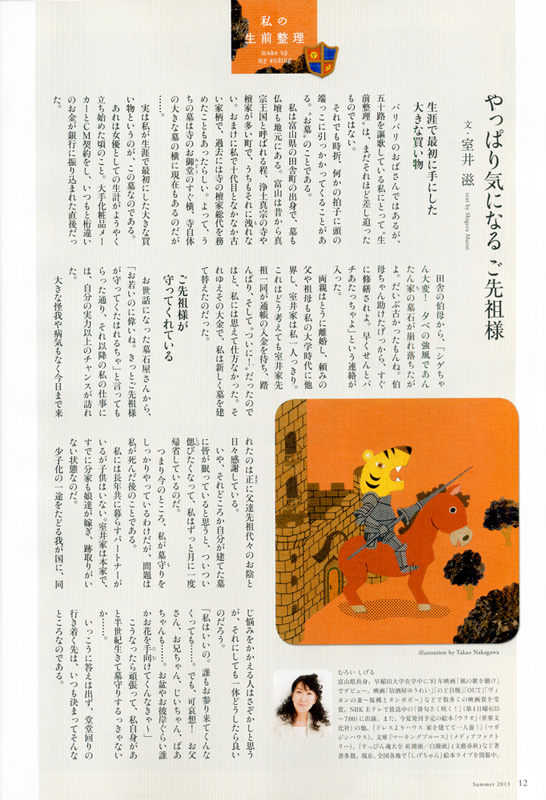 私の
生前整理
make up
my ending
やっぱり気になる ご先祖様
文・室井 滋
text by Shigeru Muroi
生涯で最初に手にした
大きな買い物
バリバリのおばさんではあるが、
五十路を謳歌している私にとって〝生
前整理〟は、まだそれほど差し迫った
ものではない。
それでも時折、何かの拍子に頭の
端っこに引っかかってくることがあ
る。〝お墓〟のことである。
私は富山県の田舎町の出身で、墓も
仏壇も地元にある。富山は昔から真
宗王国と呼ばれる程、浄土真宗の寺や
檀家が多い町で、うちもそれに洩れな
い。おまけに私で十代目となかなか古
い家柄で、過去には寺の檀家総代を務
めたこともあったらしい。よって、う
ちの墓は寺のお御堂のすぐ横、寺自体
の大きな墓の横に現在もあるのだが
……。
実は私が生涯で最初にした大きな買
い物というのが、この墓なのである。
あれは女優としての生計がようやく
立ち始めた頃のこと。大手化粧品メー
カーとCM契約をし、いつもと桁違い
のお金が銀行に振り込まれた直後だっ
た。
田舎の伯母から、「シゲちゃ
ん大変！ 夕べの強風であん
たん家の墓石が崩れ落ちたが
よ。だいぶ古かったもんね。伯
母ちゃん助けたげっから、すぐ
に修繕されよ。早くせんとバ
チあたっちゃよ」という連絡が
入った。
両親はとうに離婚し、頼みの
父や祖母も私の大学時代に他
界し、室井家は私一人っきり。
これはどう考えても室井家先
祖一同が通帳の入金を待ち、踏
んばり、そして〝ついに！〟だったので
はと、私には思えて仕方なかった。そ
れゆえその大金で、私は新しく墓を建
て替えたのだった。
ご先祖様が
守ってくれている
お世話になった墓石屋さんから、
「お若いのに偉いね。きっとご先祖様
が守ってくたはれるちゃ」と言っても
らった通り、それ以降の私の仕事に
は、自分の実力以上のチャンスが訪れ
大きな怪我や病気もなく今日まで来
れたのは正に父達先祖代々のお陰と
日々感謝している。
いや、それどころか自分が建てた墓
に皆が眠っていると思うと、ついつい
偲びたくなって、私はずっと月に一度
帰省しているのだ。
つまり今のところ、私が墓守りを
しっかりやっているわけだが、問題は
私が死んだ後のことである。
私には長年共に暮らすパートナーが
いるが子供はいない。室井家は本家で、
すでに分家も娘達が嫁ぎ、跡取りがい
ない状態なのだ。
少子化の一途をたどる我が国に、同
じ悩みをかかえる人はさぞかしと思う
が、それにしても一体どうしたら良い
のだろう。
「私はいいの。誰もお参り来てくんな
くっても……。でも、可哀想！ お父
さん、お兄ちゃん、じいちゃん、ばあ
ちゃんも……。お盆やお彼岸ぐらい誰
かお花を手向けてくんなきゃ〜」
こうなったら頑張って、私自身があ
と半世紀生きて墓守りするっきゃない
か……。
いっこうに答えは出ず、堂堂回りの
行き着く先は、いつも決まってそんな
ところなのである。
illustration by Takao Nakagawa
むろい しげる
富山県出身。早稲田大学在学中に'81年映画「風の歌を聴け」
でデビュー。映画「居酒屋ゆうれい」「のど自慢」「OUT」「ヴィ
ヨンの妻〜桜桃とタンポポ〜」などで数多くの映画賞を受
賞。NHK Eテレで放送中の「俳句さく咲く！」(第4日曜6:35
〜7:00)に出演。また、今夏発刊予定の絵本『ウリオ』(世界文
化社)の他、『ドレスよりハウス 家を建てて一人前！』(マガ
ジンハウス)、文庫『マーキングブルース』(メディアファクト
リー)、『すっぴん魂大全 紅饅頭』『白饅頭』(文藝春秋)など著
書多数。現在、全国各地で「しげちゃん」絵本ライブを開催中。
Summer 2013 12